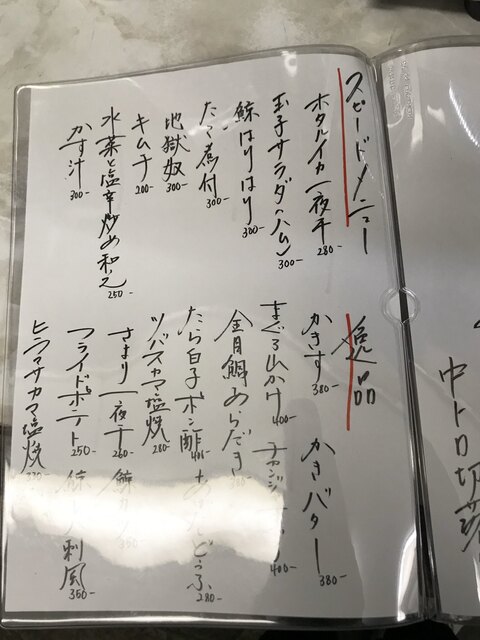 スピードメニュー
ホタルイカ一夜干 280-
玉子サラダ(ハム) 300-
鯨はりはり 300-
たこ煮付 300-
地獄奴 300-
キムチ 200-
水菜と塩辛炒め和え 250-
かす汁 300-
逸品
かきす 380-
かきバター 380-
まぐろ山かけ 400-
チャンジ 400-
金目鯛あらだき 380-
たら白子ポン酢 400-
どうふ 280-
ツバスカマ塩焼 280-
さより一夜干 260-
鯨カツ 350-
フライドポテト 250-
鯨 刺風 350-
ヒラマサカマ塩焼
中トロ切